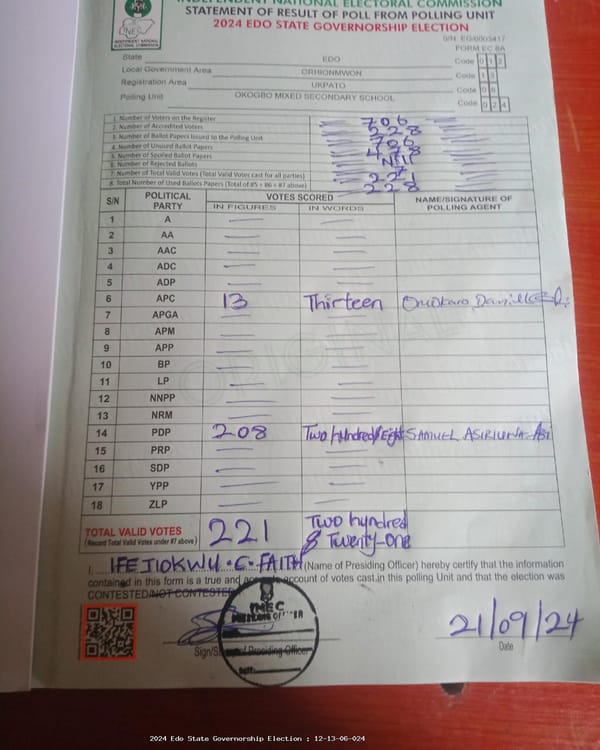 INDEPENDENT NATIONAL ELECTORAL COMMISSION
STATEMENT OF RESULT OF POLL FROM POLLING UNIT
2024 EDO STATE GOVERNORSHIP ELECTION
FORM EC 8A
State EDO Code 012
Local Government Area ORHIONMWON Code 13
Registration Area UKPATO Code 06
Polling Unit OKOGBO MIXED SECONDARY SCHOOL Code 024
1. Number of Voters on the Register 706
2. Number of Accredited Voters 228
3. Number of Ballot Papers Issued to the Polling Unit 706
4. Number of Unused Ballot Papers 478
5. Number of Spoiled Ballot Papers
6. Number of Rejected Ballots
7. Number of Total Valid Votes (Total Valid Votes cast for all parties) 221
8. Total Number of Used Ballots Papers (Total of #5 + #6 + #7 above) 228
S/N POLITICAL PARTY VOTES SCORED NAME/SIGNATURE OF POLLING AGENT
IN FIGURES IN WORDS
1 A
2 AA
3 AAC
4 ADC
5 ADP
6 APC 13 Thirteen
7 APGA
8 APM
9 APP
10 BP
11 LP
12 NNPP
13 NRM
14 PDP 208 Two hundred/Eight SAMUEL
15 PRP
16 SDP
17 YPP
18 ZLP
TOTAL VALID VOTES 221 Two hundred
(Record Total Valid Votes under #7 above) & Twenty-one
I, IFEJIOKWU .C. FAITH (Name of Presiding Officer) hereby certify that the information
contained in this form is a true and account of votes cast in this polling Unit and that the election was
CONTESTED/NOT CONTESTED
INEC
21/09/24
of Presiding Officer
Date
ORIGINAL
2024 Edo State Governorship Election : 12-13-06-024